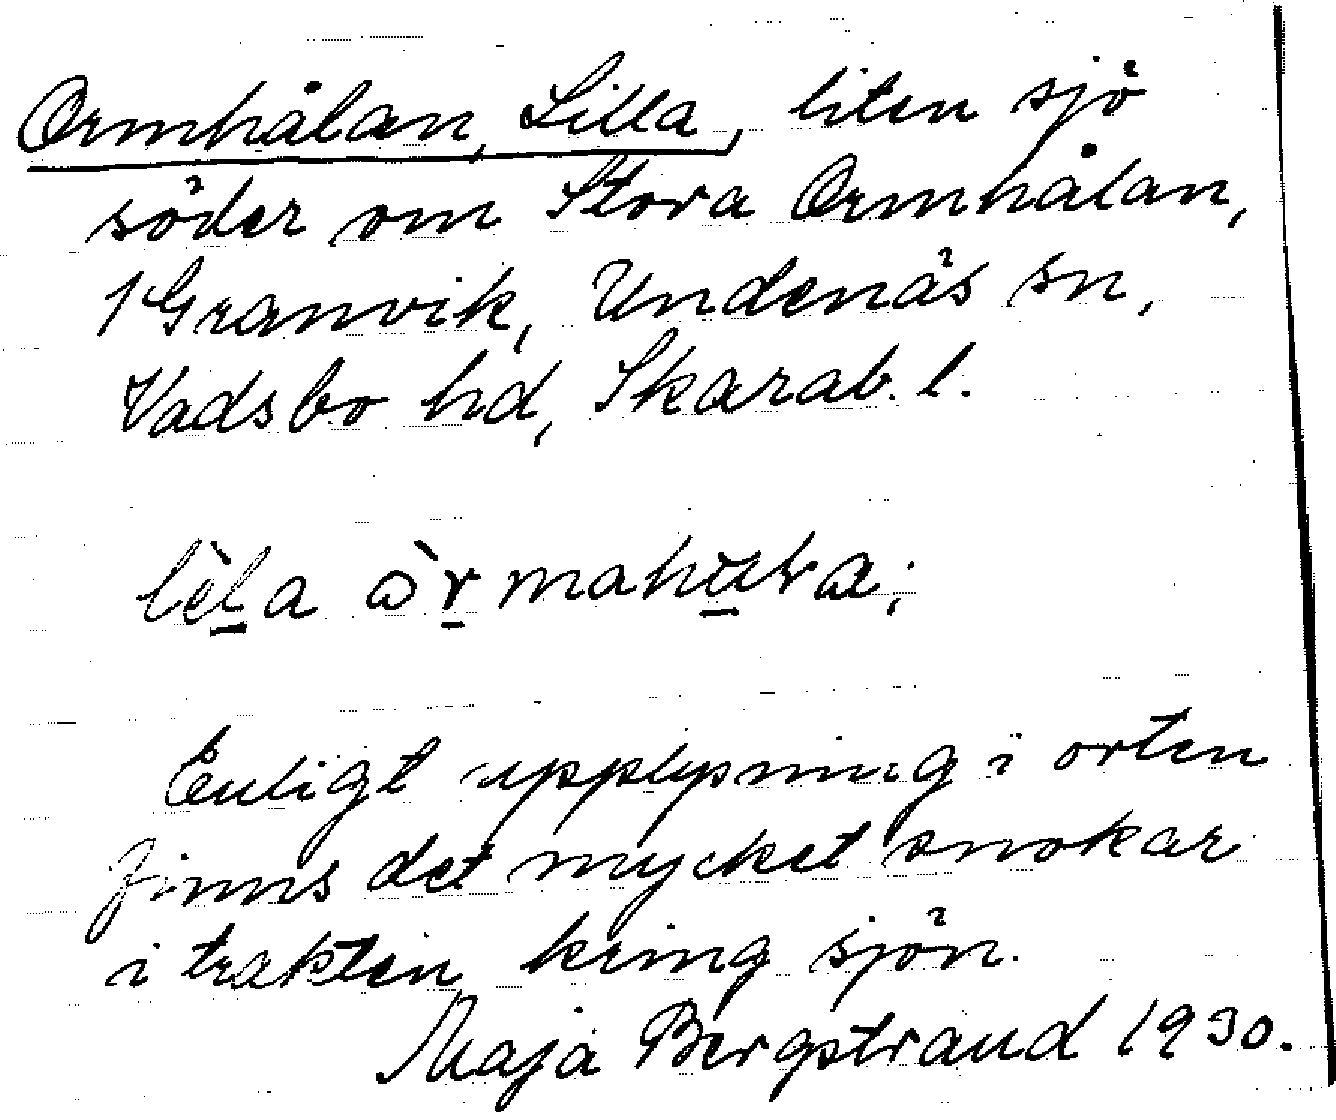 Ormhålan, Lilla, liten sjö
söder om Stora Ormhålan,
1 Granvik, Undenäs sn,
Vadsbo hd, Skarab. l.
Enligt upplysning i orten
finns det mycket snokar
i trakten kring sjön.
Maja Bergstrand 1930.